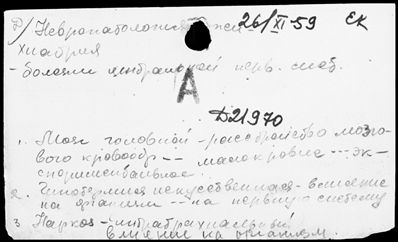 Д/ Невропатология и пси- 26/XI-59 ЕК
хиатрия
- болезни центральной нерв. сист.
А
Д21970
1. Мозг головной - расстройство мозго-
вого кровообр -- малокровие -- эк-
спериментальное.
2. Гипотермия искусственная - влияние
на организм -- на нервную систему
3. Наркоз - интратрахеальный
влияние на организм.